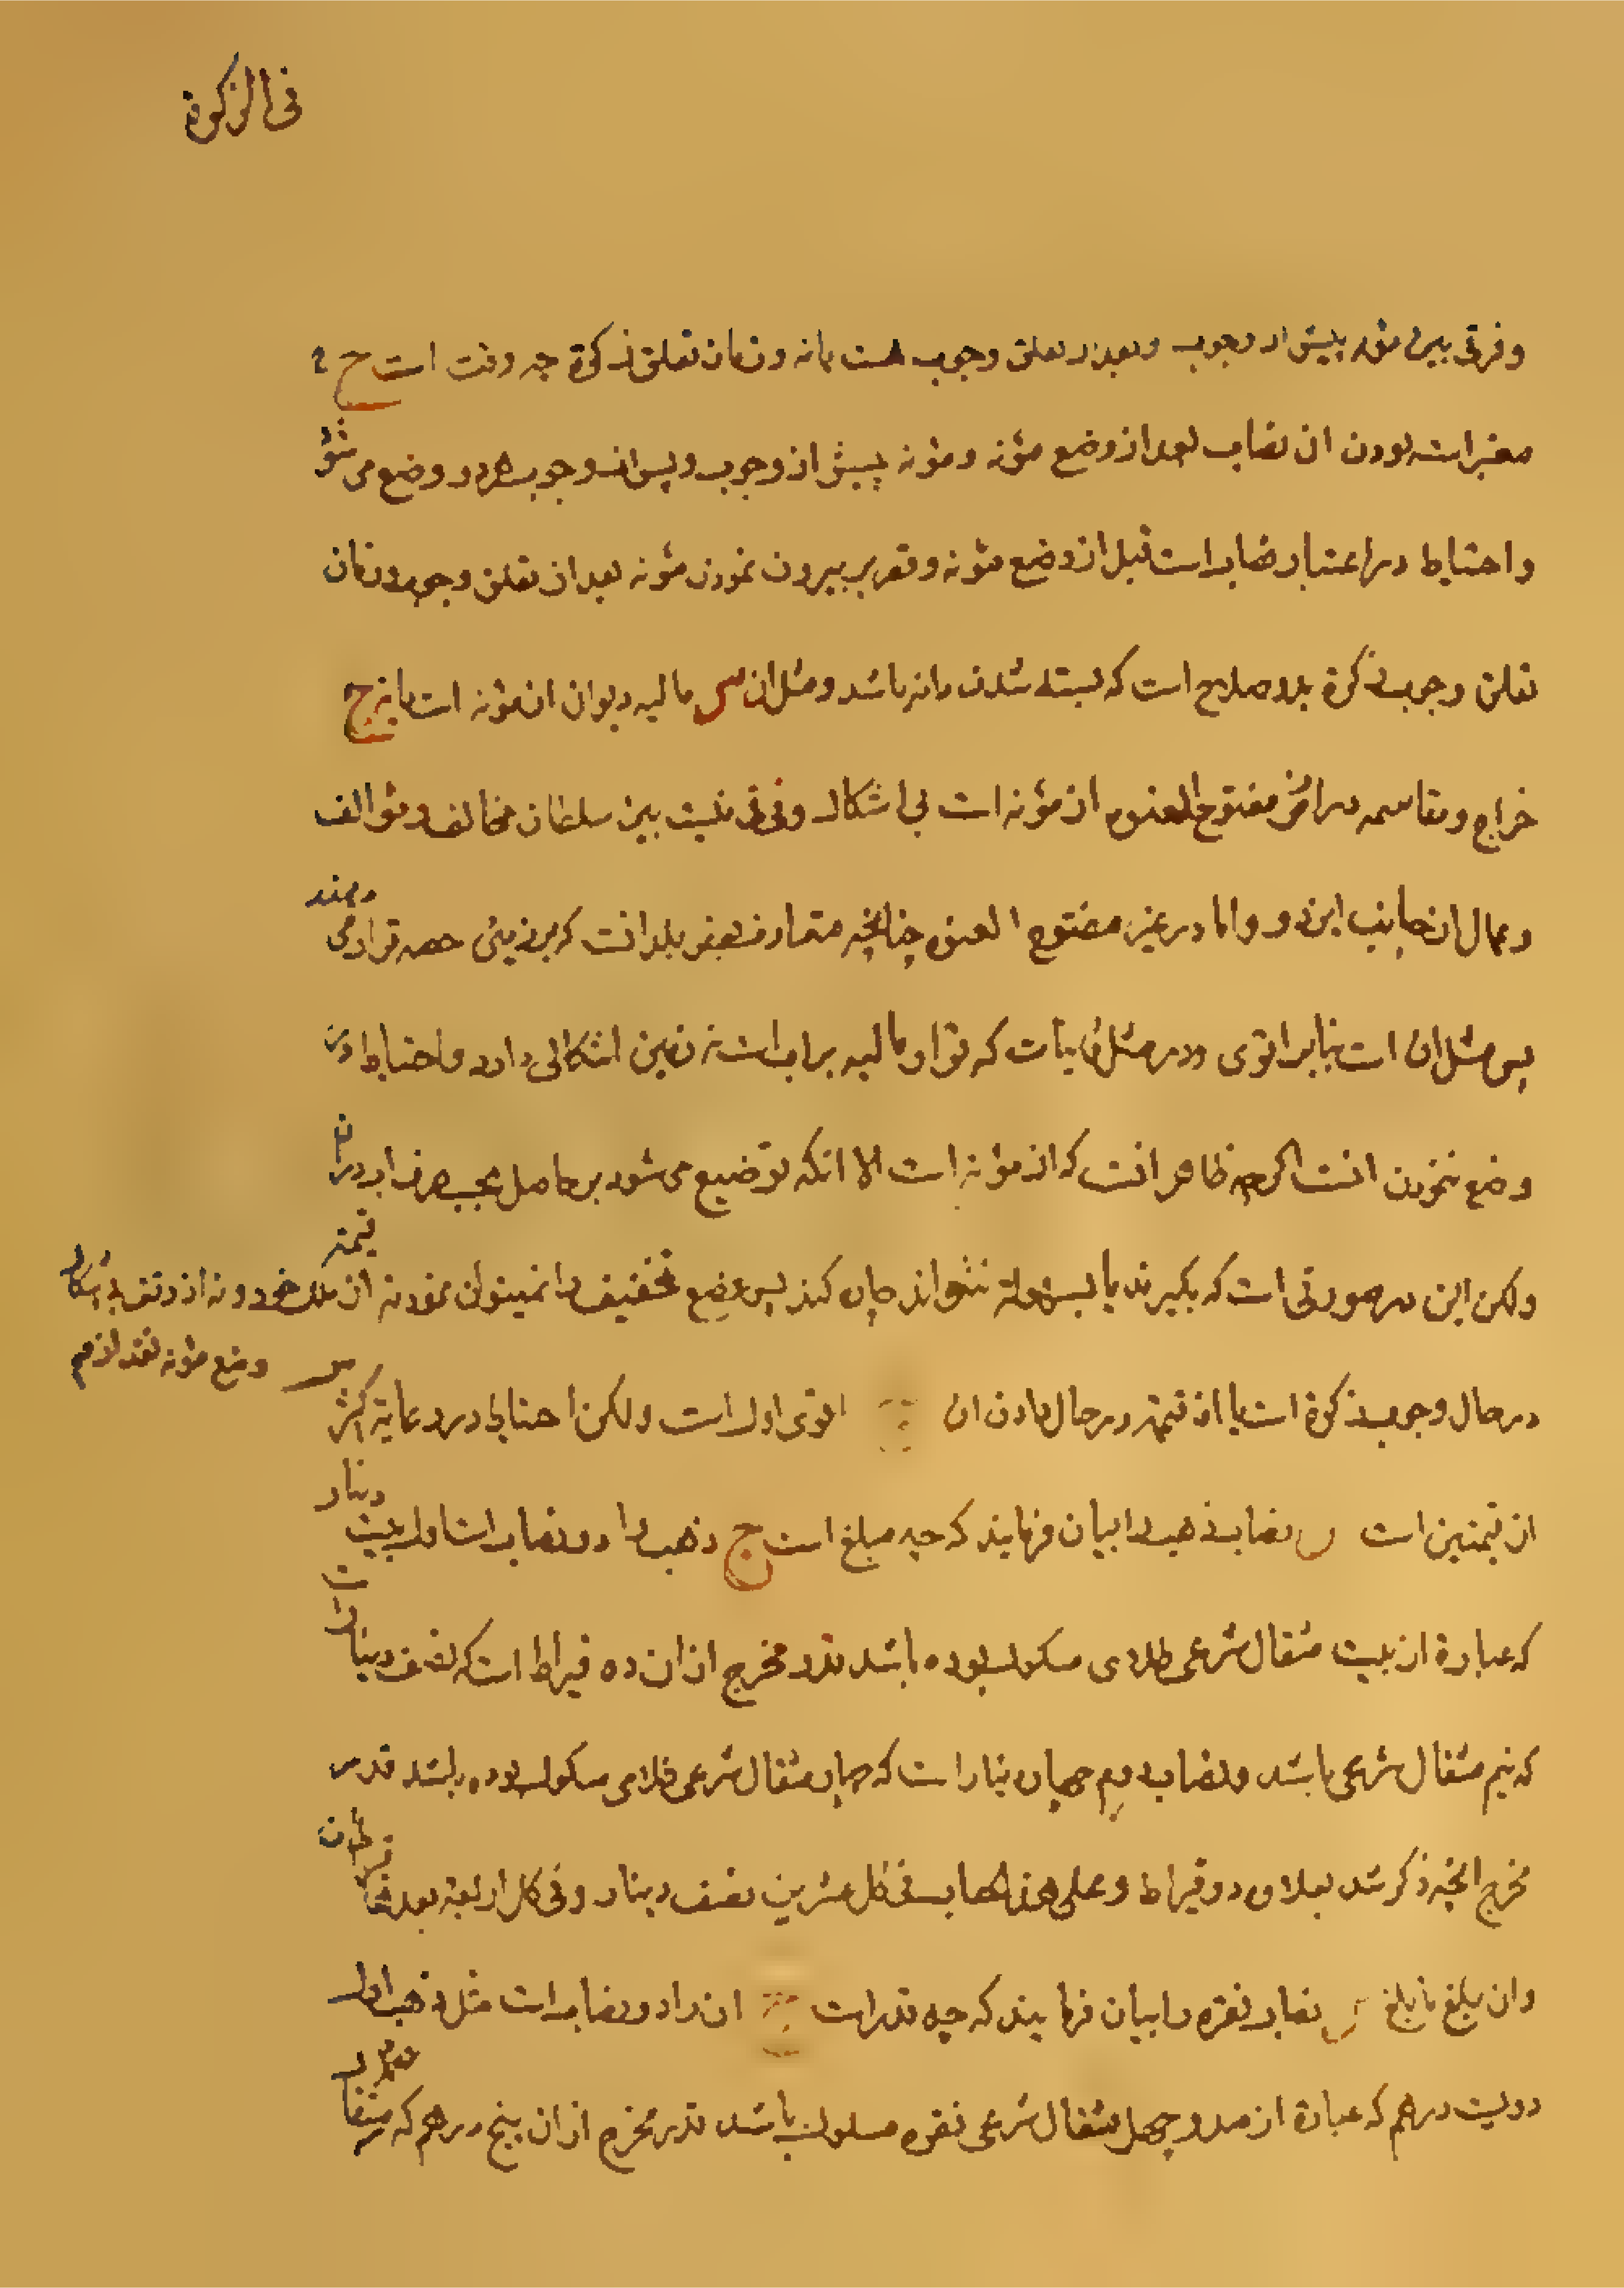 فی الزکوة
و فرق بین مؤنه پیش از وجوب و بعد از تعلق وجوب هست یا نه و زمان تعلق زکوة چه وقت است ج
معتبر است بودن ان نصاب بعد از وضع مؤنه و مؤنه پیش از وجوب و پس از وجوب هر دو وضع می شو
و احتیاط در اعتبار نصاب است قبل از وضع مؤنه و بیرون نمودن مؤنه بعد از تعلق وجوب و زمان
تعلق وجوب زکوة بدو صلاح است که بسته شدن دانه باشد و مثل ان س مالیه دیوان از مؤنه است یا نه ج
خراج و مقاسمه در اراضی مفتوح العنوه از مؤنه است بی اشکال و فرقی نیست بین سلطان مخالف و مؤالف
و عمال از جانب این دو و اما در غیر مفتوح العنوه چنانچه متعارف بعض بلد انست که بر زمین حصه قرار می دهند
پس مثل ان است بنابر اقوی و در مثل که قرار مالیه بر اب است نه زمین اشکالی دارد و احتیاط در
وضع ننمودن انست اگرچه ظاهر انست که از مؤنه است الا انکه توضیع می شود بر حاصل بحسب صرف اب در ان
ولکن این در صورتی است که بگیرند یا بسهولة نتواند چاره کند پس وضع تخفیف را نمیتوان نمود نه از ملک خود و نه از وقف بی اشکال
س وضع مؤنه بقدر لازم قیمته
در حال وجوب زکوة است یا از قیمته در حال دادن ان ج اقوی اول است ولکن احتیاط در رعایة اکثر
از قیمتین است س نصاب ذهب را بیان فرمایند که چه مبلغ است ج ذهب را دو نصاب است اول بیست دینار
که عبارة از بیست مثقال شرعی طلای مسکوک بوده باشد قدر مخرج از ان ده قیراط است که نصف دینار است
که نیم مثقال شرعی باشد و نصاب دوم چهار دینار است که چهار مثقال شرعی طلای مسکوک بوده باشد قدر
مخرج انچه ذکر شد بعلاوه دو قیراط و علی هذا الحساب فی کل عشرین نصف دینار و فی کل اربعة بعدها قیراطان
و ان بلغ ما بلغ س نصاب نقره را بیان فرمایند که چه قدر است ج ان را دو نصاب است مثل ذهب اول
دویست درهم که عبارة از صد و چهل مثقال شرعی نقره مسکوک باشد قدر مخرج از ان پنج درهم که